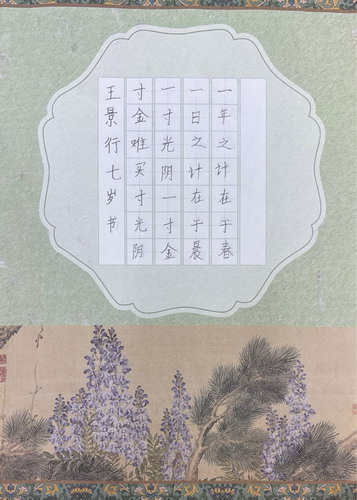 一年之计在于春
一日之计在于晨
一寸光阴一寸金
寸金难买寸光阴
王景行七岁书